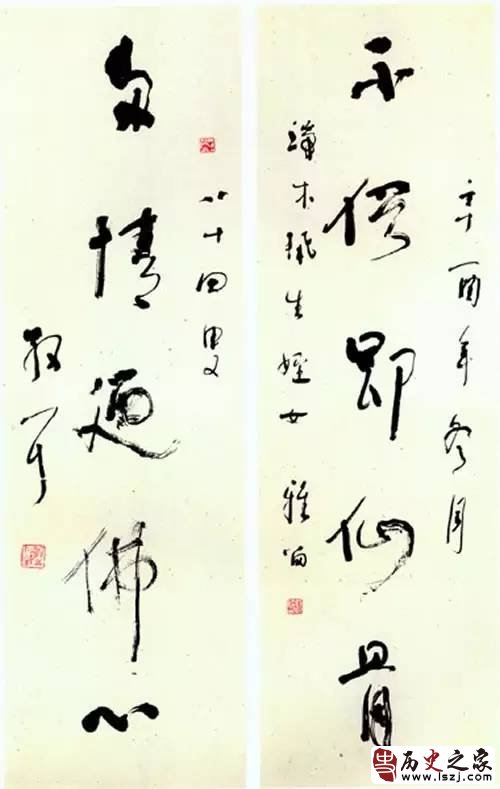 辛酉年冬月
不俗即仙骨
生姪女 雅
八十四叟
多情迺佛心
散耳
历史之家
www.lszj.com